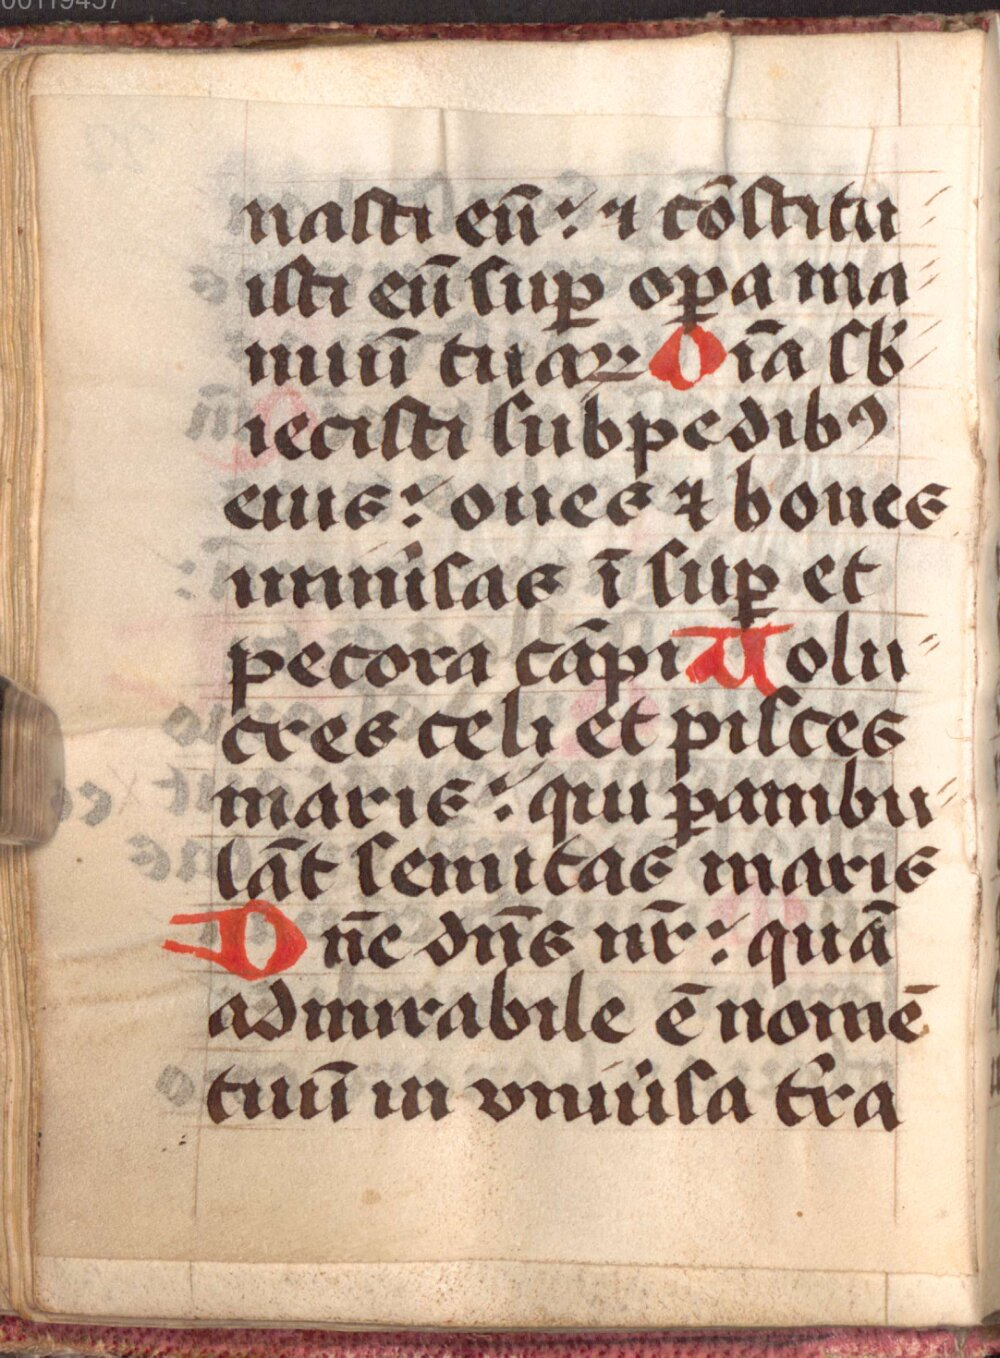 00119457
nasti eū: ⁊ cōstitu
isti eū sup̲ op̲a ma
nuū tuaꝝ Oīa sb̄
iecisti sub pedibꝰ
eius: oues ⁊ boues
uniu̓sas ī sup̲ et
pecora cāpi Uolu
cres celi et pisces
maris: qui p̲ambu
lāt semitas maris
Dn̄e dn̄s nr̄: quā
admirabile ē nomē
tuū in vniu̓sa tr̄a